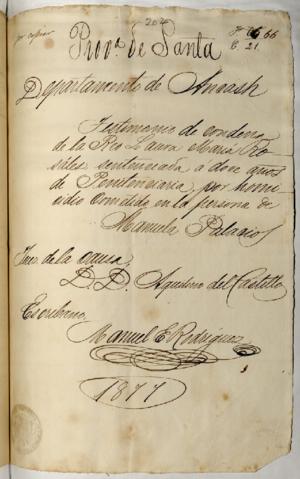 por copiar
204
F. 66 66
C. 21.
Prov.ª de Santa
Departamento de Ancash
Testimonio de condena
de la Reo Laura Maria Ro-
sales sentenciada á doce años
de Penitenciaria, por homi-
cidio cometido en la persona de
Manuela Palacios
Juez de la causa
D. D. Agustin del Castillo
Escribano
Manuel E Rodriguez
1877